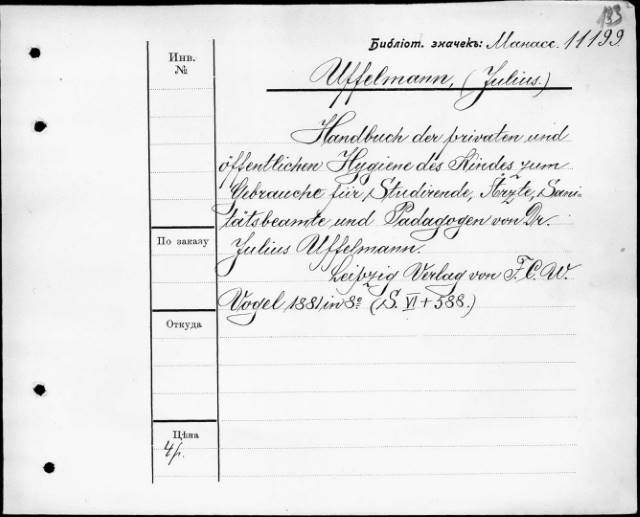 133
Библіот. значекъ: Манасс. 11199
Инв.
№
Uffelmann, (Julius.)
Handbuch der privaten und
öffentlichen Hygiene des Kindes zum
Gebrauche für Studirende, Ärzte, Sani-
tätsbeamte und Pädagogen von Dr.
По заказу
Julius Uffelmann.
Leipzig Verlag von F. C. W.
Vogel 1881 in 8º (S. VI + 588.)
Откуда
Цѣна
4 р.